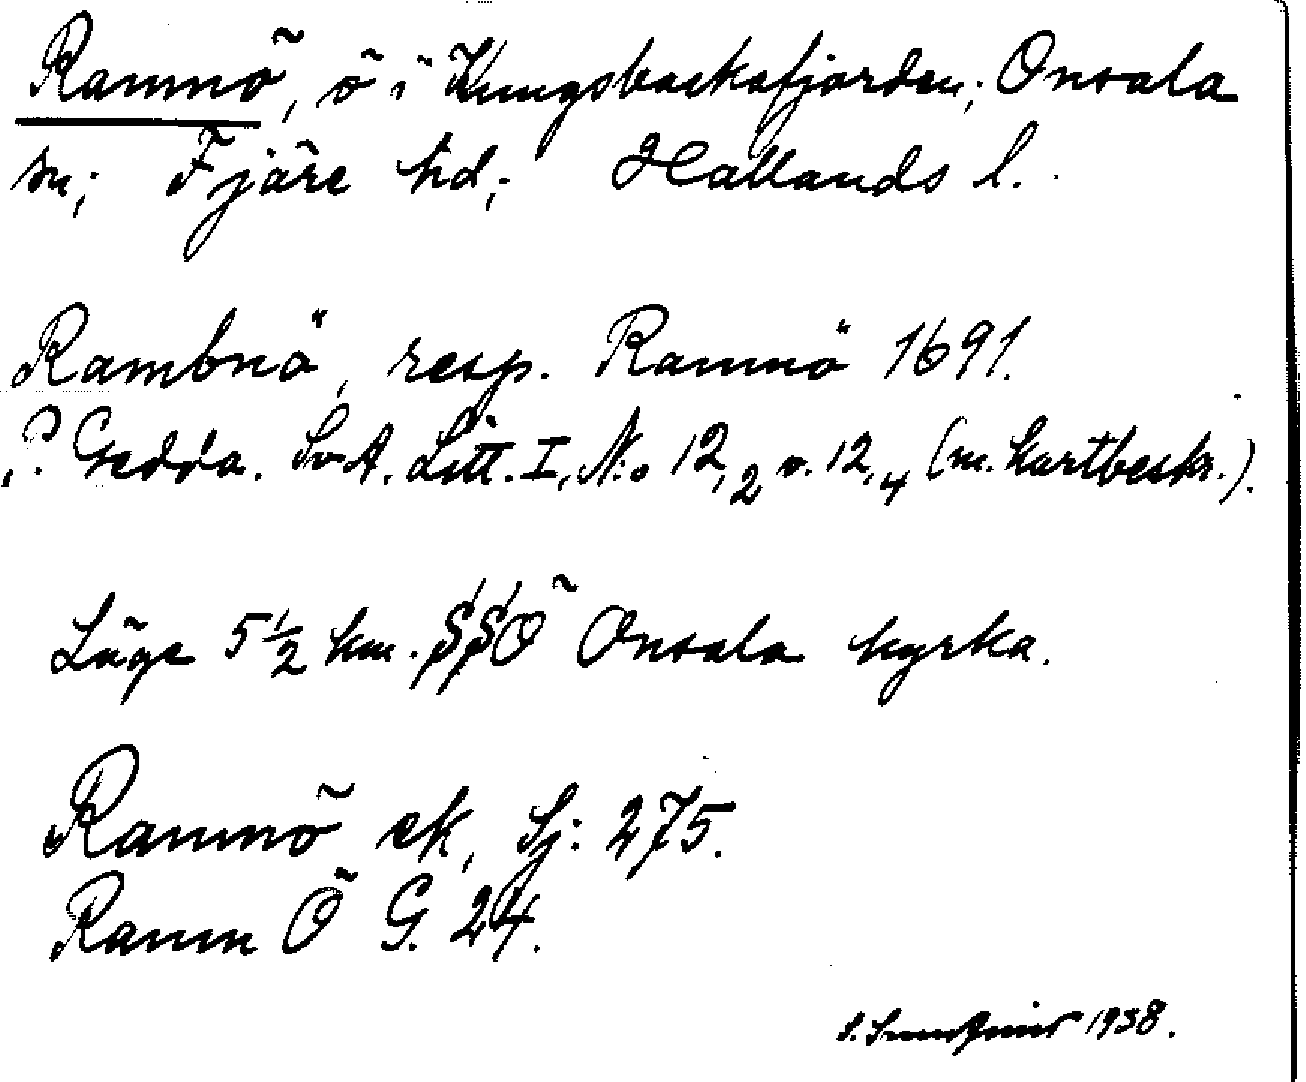 Ramnö, ö i Kungsbackafjorden; Onsala
sn; Fjäre hd; Hallands l.
Rambnö, resp. Ramnö 1691.
P. Gedda. SvA. Litt. I, N:o 12,2 o. 12,4 (m. kartbeskr.).
Läge 5 1/2 km. SSÖ Onsala kyrka.
Ramnö ek, Sj: 275.
Ramn Ö G. 24.
S. 1938.